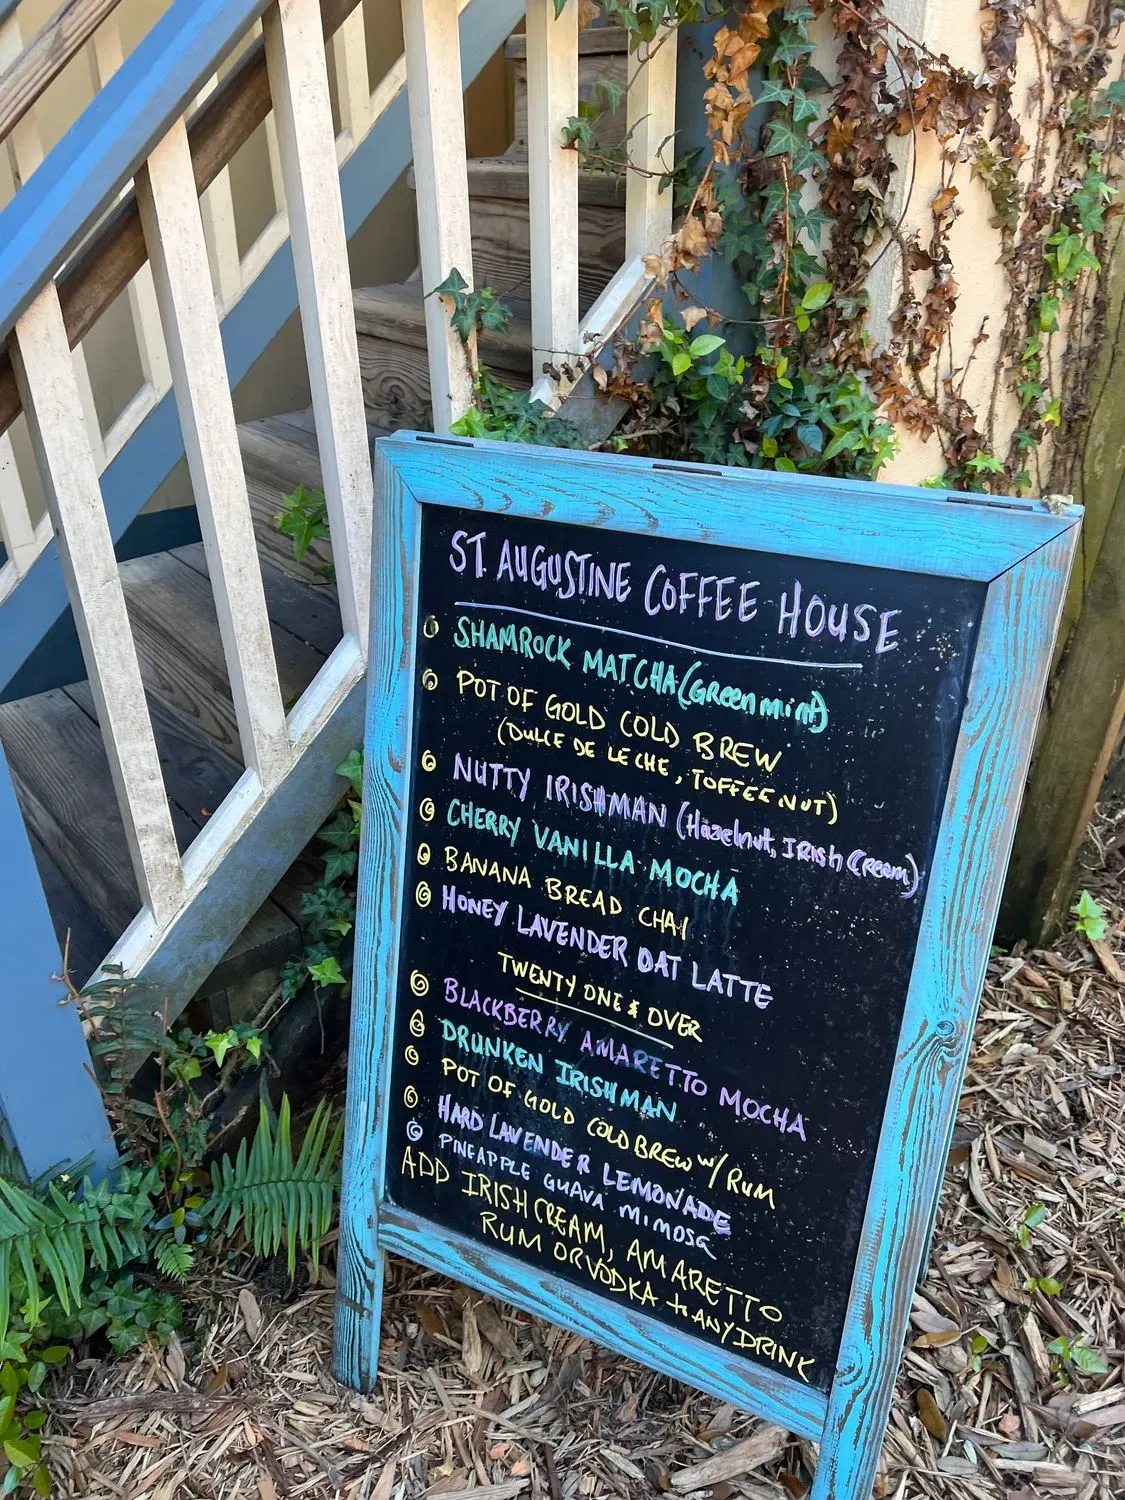 ST. AUGUSTINE COFFEE HOUSE
SHAMROCK MATCHA (Green mint)
POT OF GOLD COLD BREW
(DULCE DE LECHE, TOFFEE NUT)
NUTTY IRISHMAN (Hazelnut, IRISH Cream)
CHERRY VANILLA MOCHA
BANANA BREAD CHAI
HONEY LAVENDER OAT LATTE
TWENTY ONE & OVER
BLACKBERRY AMARETTO MOCHA
DRUNKEN IRISHMAN
POT OF GOLD COLD BREW w/ RUM
HARD LAVENDER LEMONADE
PINEAPPLE GUAVA MIMOSA
ADD IRISH CREAM, AMARETTO
RUM OR VODKA to ANY DRINK